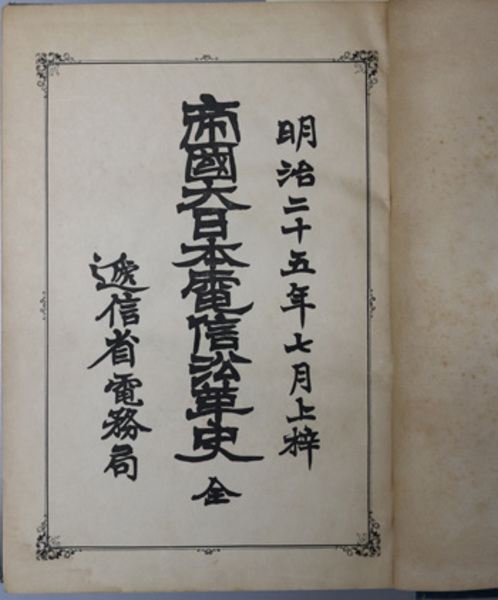 明治二十五年七月上梓
帝國大日本電信沿革史
全
遞信省電務局